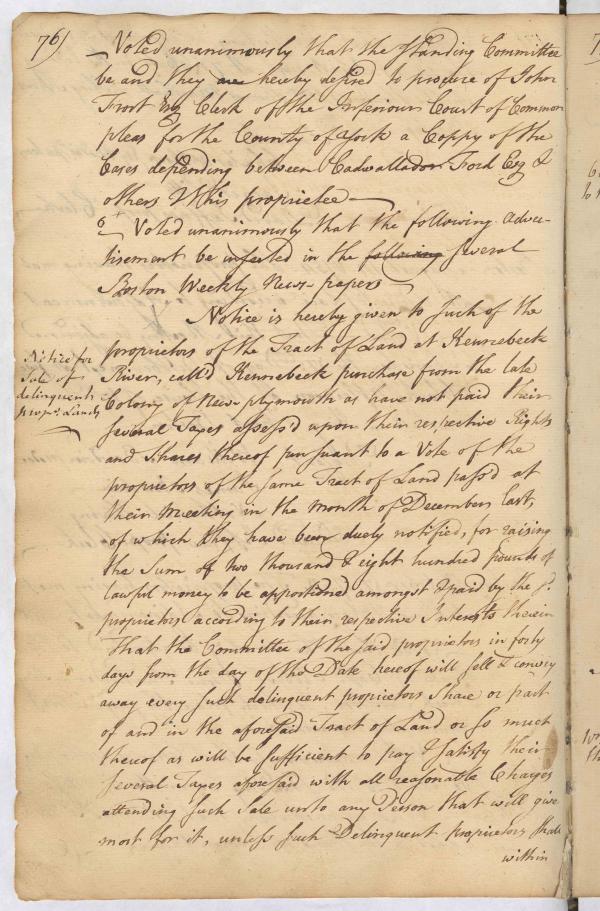 76)
Voted unanimously that the Standing Committee
be and they are hereby desired to procure of John
Frost Esq Clerk off the Inferiour Court of Common
pleas for the County of York a Coppy of the
Cases depending between Cadwallador Ford Esq &
others & this proprietee
6 Voted unanimously that the following adver-
tisement be inserted in the following several
Boston Weekly News-papers
Notice is hereby given to such of the
proprietors of the Tract of Land at Kennebeck
River, call'd Kennebeck purchase from the late
Colony of New plymouth as have not paid their
several Taxes assess'd upon their respective Rights
and Shares thereof pursuant to a Vote of the
proprietors of the same Tract of Land pass'd at
their Meeting in the month of December last,
of which they have been duely notified, for raising
the Sum of two thousand & eight hundred pounds of
lawful money to be apportioned amongst & paid by the sd.
proprietors according to their respective Interests therein
That the Committee of the said proprietors in forty
days from the day of the Date hereof will sell & convey
away every such delinquent proprietors Share or part
of and in the aforesaid Tract of Land or so much
thereof as will be sufficient to pay & satisfy their
several Taxes aforesaid with all reasonable Charges
attending such Sale unto any Person that will give
most for it, unless such Delinquent proprietors shall
within
Notice for
Sale of
delinquents
proprs. Lands